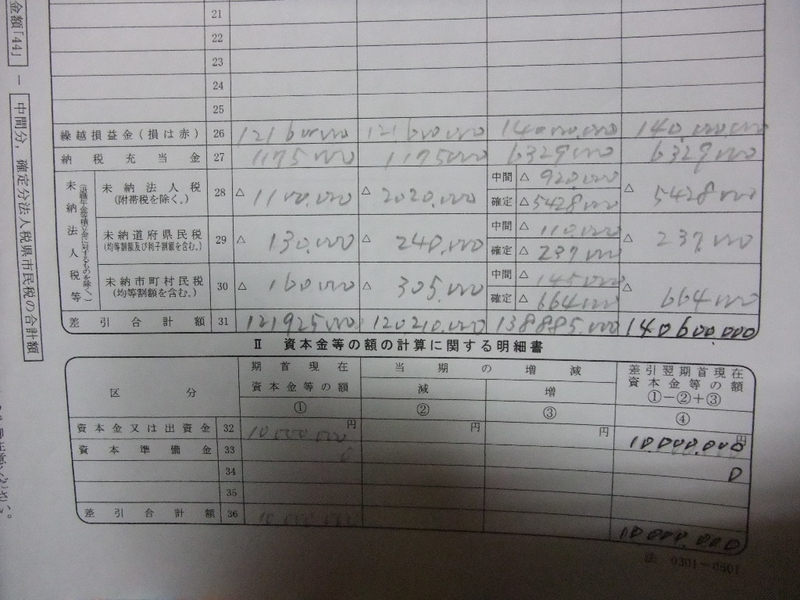 金額「44」 ー 中間分，確定分法人税県市民税の合計額
21
22
23
24
25
繰越損益金(損は赤) 26 121600,000 121600,000 140,000,000 140,000,000
納税充当金 27 1175000 1175000 6329000 6329000
未納法人税等
未納法人税 (附帯税を除く。) 28 △ 1100,000 △ 2020,000 中間 △ 920,000 確定 △ 5428000 △ 5428000
未納道府県民税 (均等割額及び利子割額を含む。) 29 △ 130,000 △ 240,000 中間 △ 110,000 確定 △ 237,000 △ 237,000
未納市町村民税 (均等割額を含む。) 30 △ 160000 △ 305,000 中間 △ 145000 確定 △ 664000 △ 664000
差引合計額 31 121925000 120210,000 138885,000 140600,000
II 資本金等の額の計算に関する明細書
区分 期首現在資本金等の額 当期の増減 差引翌期首現在資本金等の額
① 減 ② 増 ③ ①－②＋③ ④
資本金又は出資金 32 10,000,000 円 円 円 10,000,000 円
資本準備金 33 0 0
34
35
差引合計額 36 10,000,000 10,000,000
法 0301－0501